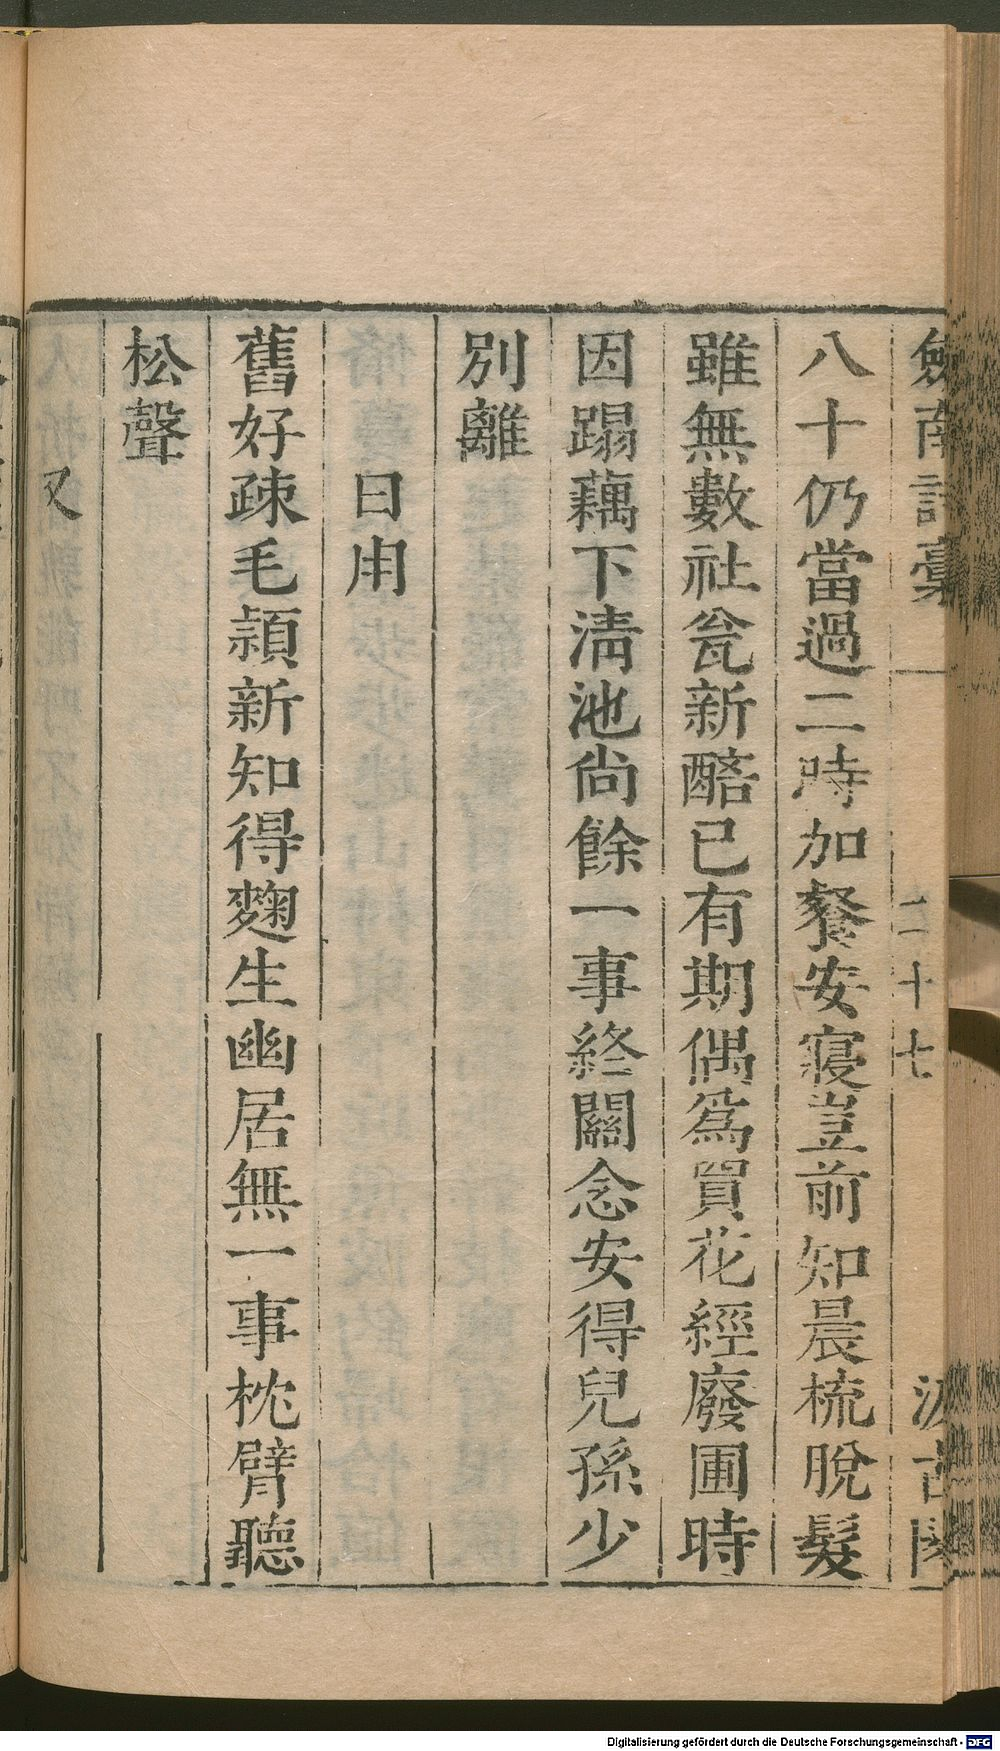 劍南詩稾 二十七 汲古閣
八十仍當過二時加餐安寢豈前知晨梳脫髮
雖無數社甕新醅已有期偶爲買花經廢圃時
因蹋藕下淸池尙餘一事終關念安得兒孫少
別離
日用
舊好疎毛穎新知得麴生幽居無一事枕臂聽
松聲
又
Digitalisierung gefördert durch die Deutsche Forschungsgemeinschaft - DFG